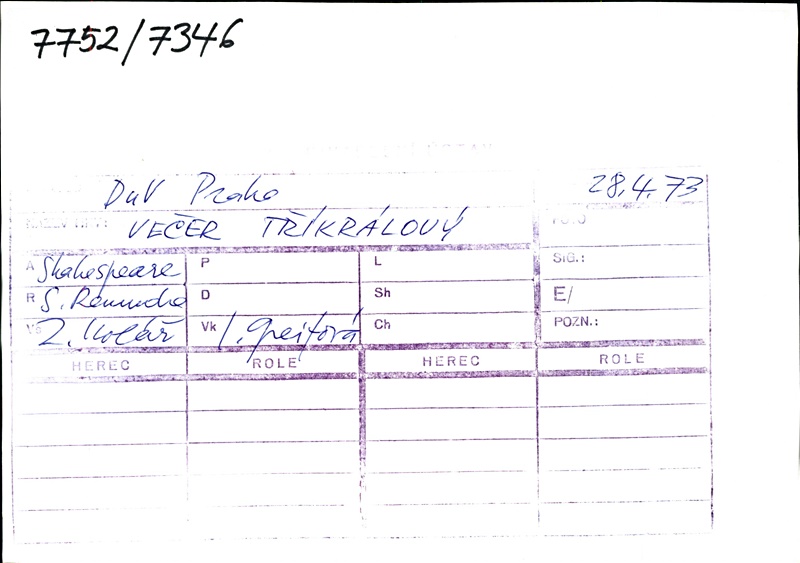 7752/7346
DnV Praha 28.4.73
NÁZEV HRY: VEČER TŘÍKRÁLOVÝ
A Shakespeare P L SIG.:
R S. Remunda D Sh E/
Vs Z. Kolář Vk I. Greifová Ch POZN.:
HEREC ROLE HEREC ROLE